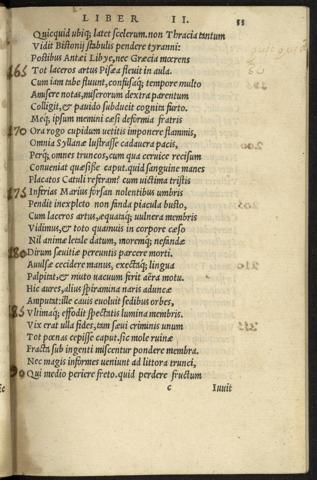 LIBER II. 33
Quicquid ubiq; latet scelerum. non Thracia tantum
Vidit Bistonij stabulis pendere tyranni:
Postibus Antæi Libye, nec Græcia mœrens
165 Tot laceros artus Pisæa fleuit in aula.
Cum iam tabe fluunt, confusaq; tempore multo
Amisere notas, miserorum dextra parentum
Colligit, & pauido subducit cognita furto.
Meq; ipsum memini cæsi deformia fratris
170 Ora rogo cupidum uetitis imponere flammis,
Omnia Syllanæ lustrasse cadauera pacis,
Perq; omnes truncos, cum qua ceruice recisum
Conueniat quæsisse caput. quid sanguine manes
Placatos Catuli referam? cum uictima tristis
175 Inferias Marius forsan nolentibus umbris
Pendit inexpleto non fanda piacula busto,
Cum laceros artus, æquataq; uulnera membris
Vidimus, & toto quamuis in corpore cæso
Nil animæ letale datum, moremq; nefandæ
180 Dirum sæuitiæ pereuntis parcere morti.
Auulsæ cecidere manus, exectaq; lingua
Palpitat, & muto uacuum ferit aëra motu.
Hic aures, alius spiramina naris aduncæ
Amputat: ille cauis euoluit sedibus orbes,
185 Vltimaq; effodit spectatis lumina membris.
Vix erat ulla fides, tam sæui criminis unum
Tot pœnas cepisse caput. sic mole ruinæ
Fracta sub ingenti miscentur pondere membra.
Nec magis informes ueniunt ad littora trunci,
90 Qui medio periere freto. quid perdere fructum
c Iuuit